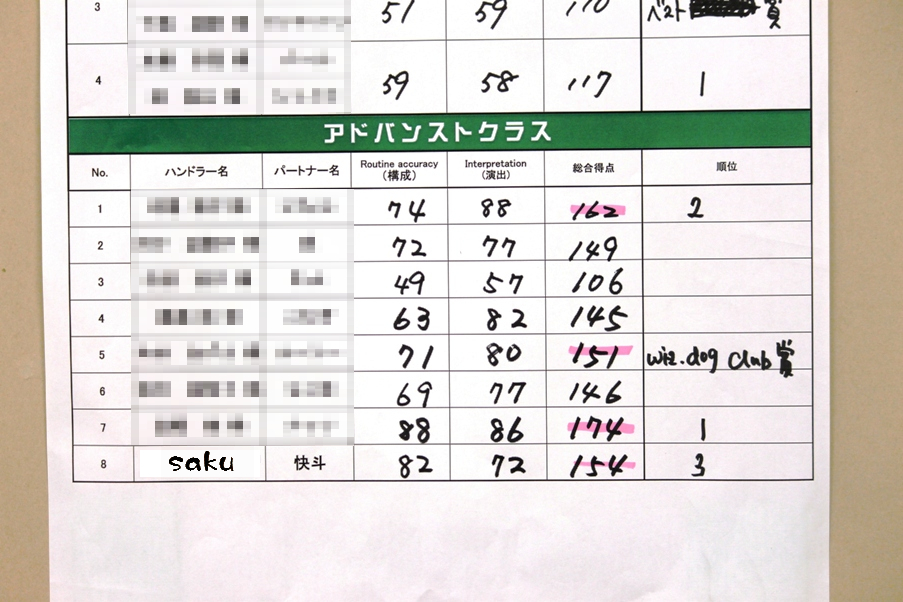 3 51 59 110 ベスト 賞
4 59 58 117 1
アドバンストクラス
No. ハンドラー名 パートナー名 Routine accuracy (構成) Interpretation (演出) 総合得点 順位
1 74 88 162 2
2 72 77 149
3 49 57 106
4 63 82 145
5 71 80 151 wiz.dog club賞
6 69 77 146
7 88 86 174 1
8 saku 快斗 82 72 154 3